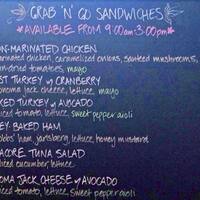 GRAB 'N' GO SANDWICHES
*AVAILABLE FROM 9:00am-3:00pm*
N-MARINATED CHICKEN
arinated chicken, caramelized onions, sauteed mushrooms,
n-dried tomatoes, mayo
ST TURKEY w/ CRANBERRY
onoma jack cheese, lettuce, mayo
ST TURKEY w/ AVOCADO
iced tomato, lettuce, sweet pepper aioli
EY-BAKED HAM
bbs' ham, jarlsberg, lettuce, honey mustard
ACORE TUNA SALAD
iced cucumber, lettuce
OMA JACK CHEESE w/ AVOCADO
iced tomato, lettuce, sweet pepper aioli